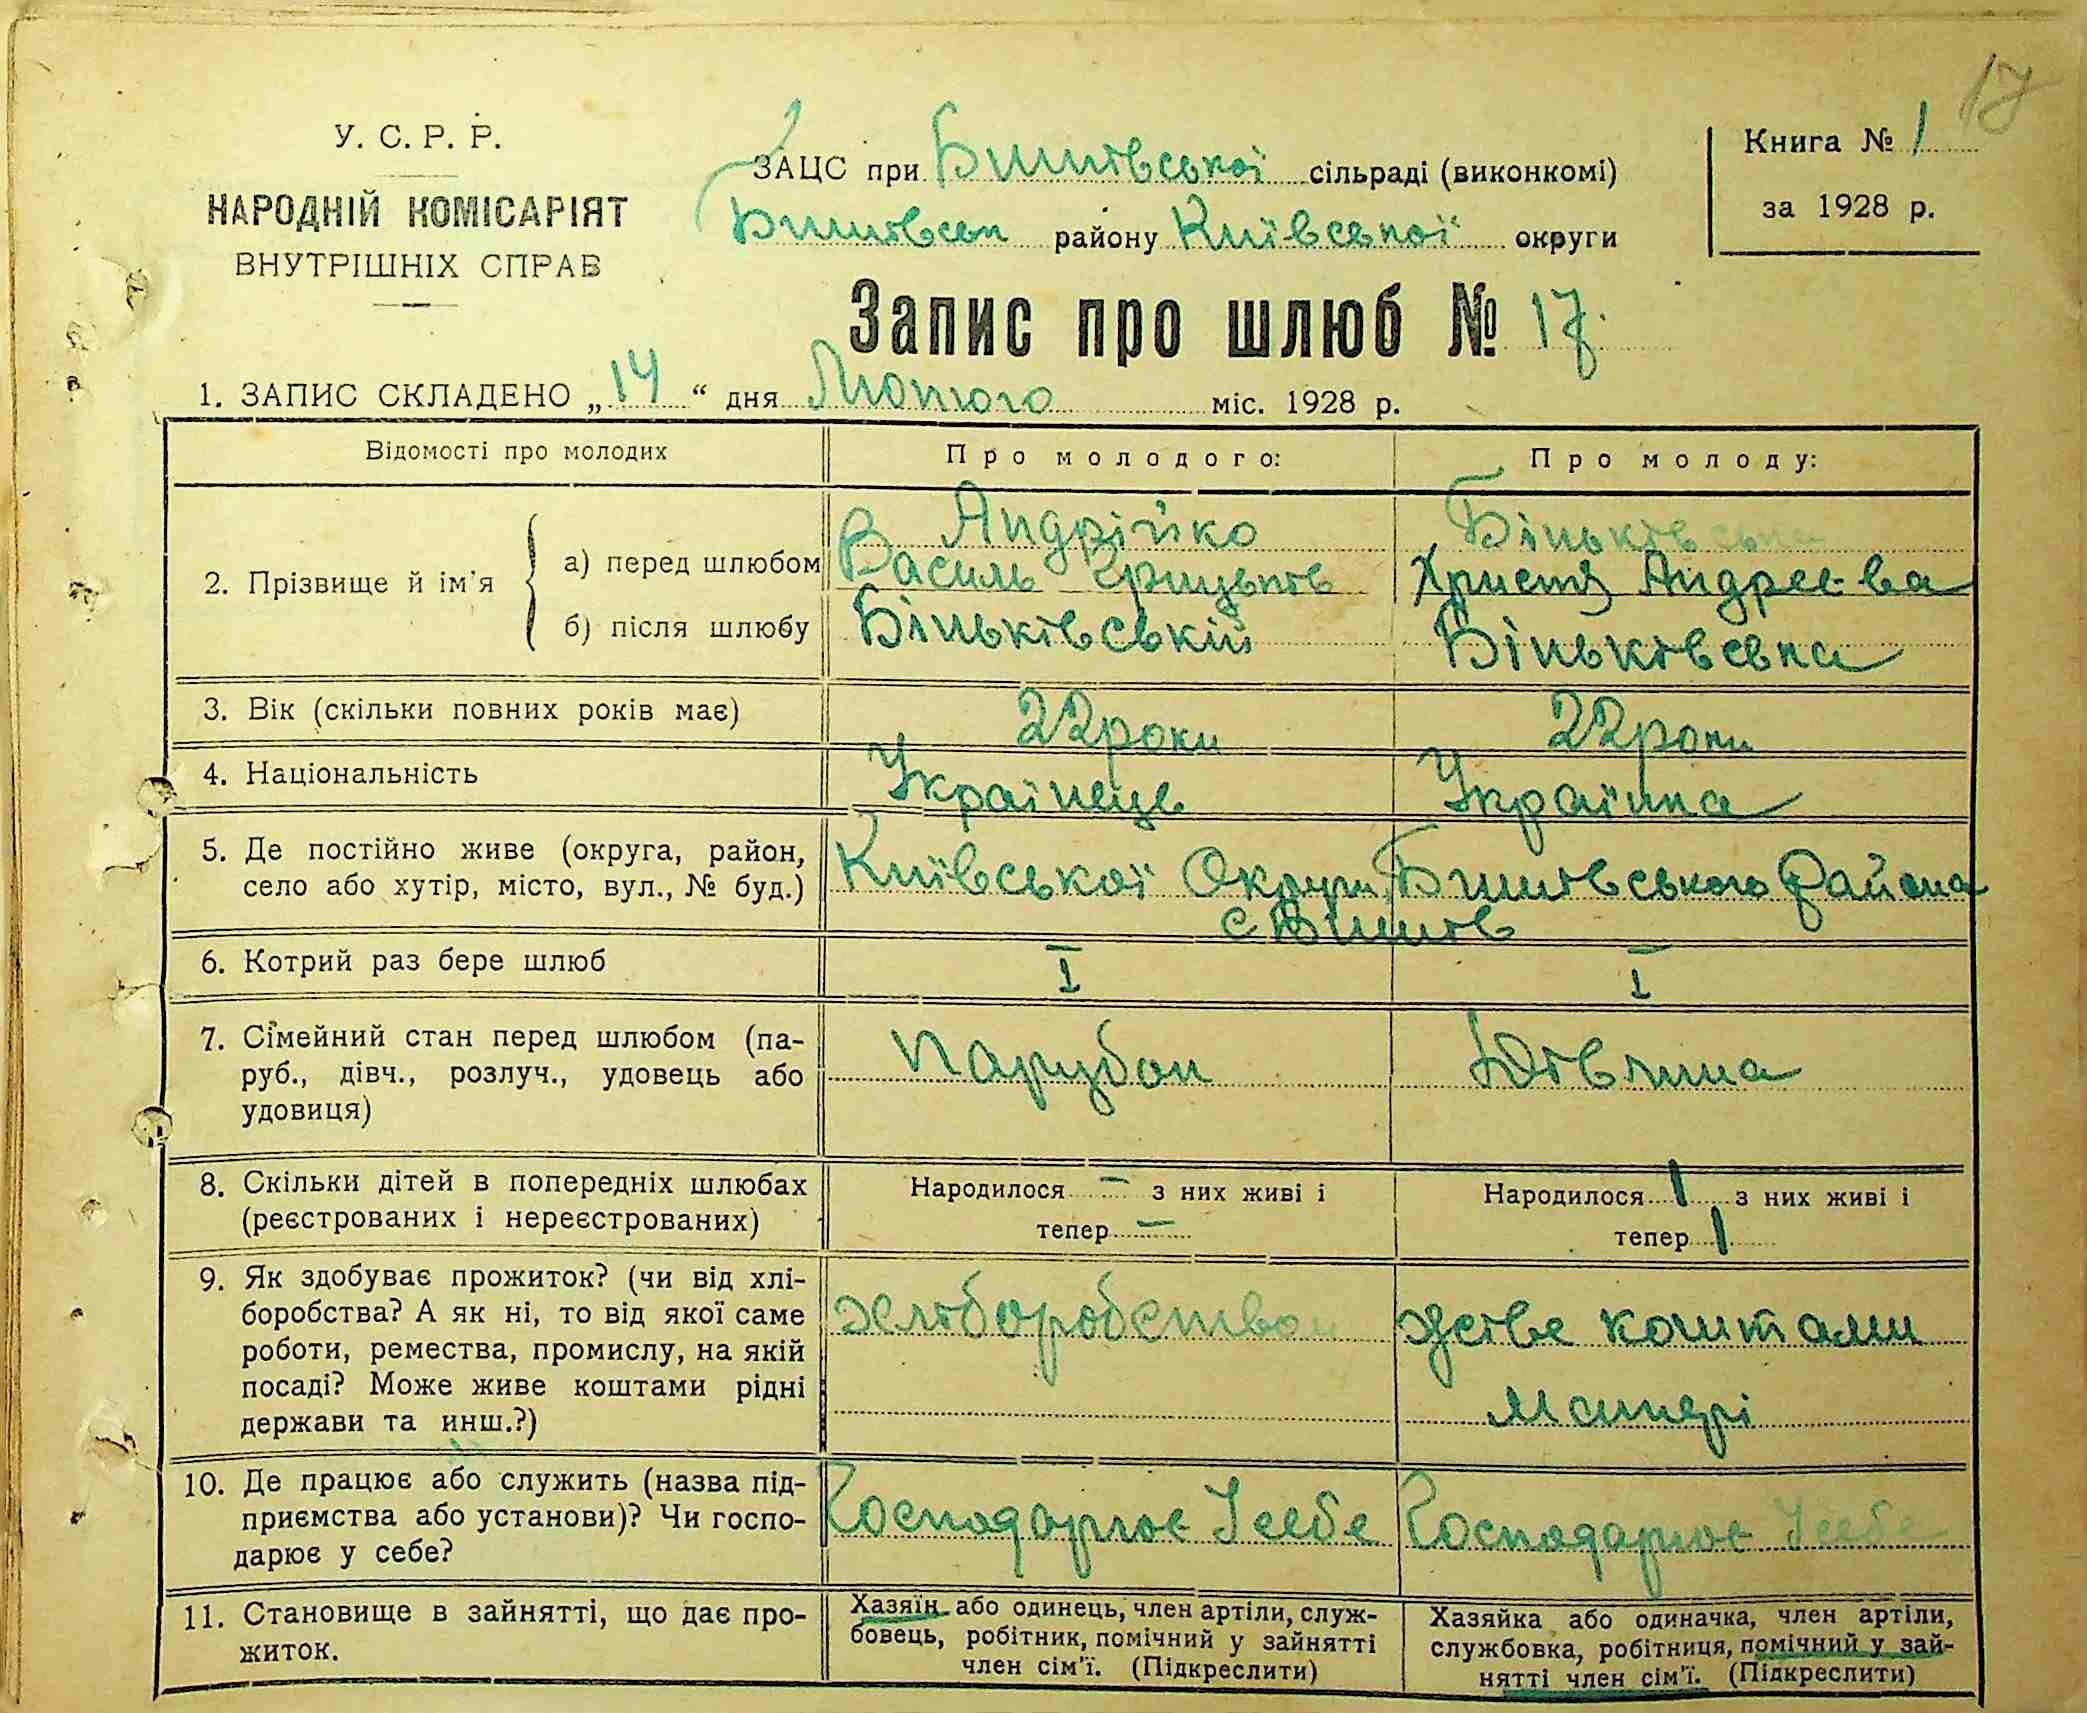 17
У. С. Р. Р.
НАРОДНІЙ КОМІСАРІЯТ
ВНУТРІШНІХ СПРАВ
ЗАЦС при Бишівської сільраді (виконкомі)
Бишівськ району Київської округи
Книга № 1
за 1928 р.
Запис про шлюб № 17.
1. ЗАПИС СКЛАДЕНО „14“ дня Лютого міс. 1928 р.
Відомості про молодих
Про молодого:
Про молоду:
2. Прізвище й ім'я
а) перед шлюбом
б) після шлюбу
Андрійко
Василь Грицьків
Біньківській
Біньківська
Христя Андреєва
Біньківська
3. Вік (скільки повних років має)
22 роки
22 роки
4. Національність
Українець
Українка
5. Де постійно живе (округа, район,
село або хутір, місто, вул., № буд.)
Київської Округи Бишівського Района
с Бишів
6. Котрий раз бере шлюб
I
I
7. Сімейний стан перед шлюбом (па-
руб., дівч., розлуч., удовець або
удовиця)
Парубок
Дівчина
8. Скільки дітей в попередніх шлюбах
(реєстрованих і нереєстрованих)
Народилося — з них живі і
тепер —
Народилося 1 з них живі і
тепер 1
9. Як здобуває прожиток? (чи від хлі-
боробства? А як ні, то від якої саме
роботи, ремества, промислу, на якій
посаді? Може живе коштами рідні
держави та инш.?)
хліборобством
живе коштами
матері
10. Де працює або служить (назва під-
приємства або установи)? Чи госпо-
дарює у себе?
Господарює У себе
Господарює У себе
11. Становище в зайнятті, що дає про-
житок.
Хазяїн або одинець, член артіли, служ-
бовець, робітник, помічний у зайнятті
член сім'ї. (Підкреслити)
Хазяйка або одиначка, член артіли,
службовка, робітниця, помічний у зай-
нятті член сім'ї. (Підкреслити)